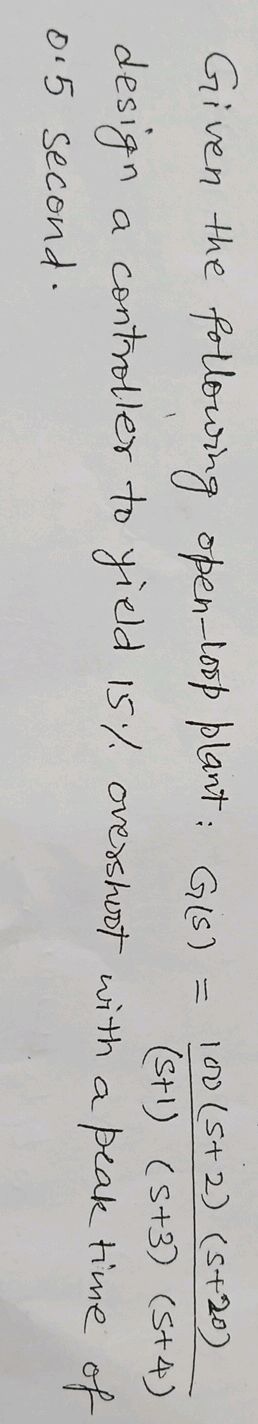 Given the following open-loop plant: G(s) = 100(s+2)(s+20)
(s+1)(s+3)(s+4)
design a controller to yield 15% overshoot with a peak time of
0.5 second.